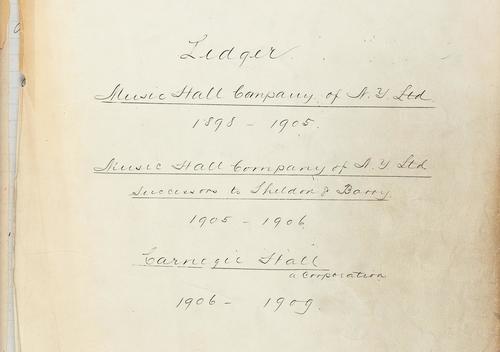 Ledger
Music Hall Company of N.Y. Ltd.
1898 - 1905.
Music Hall Company of N.Y. Ltd
Successors to Sheldon & Barry
1905 - 1906
Carnegie Hall
a Corporation
1906 - 1909.